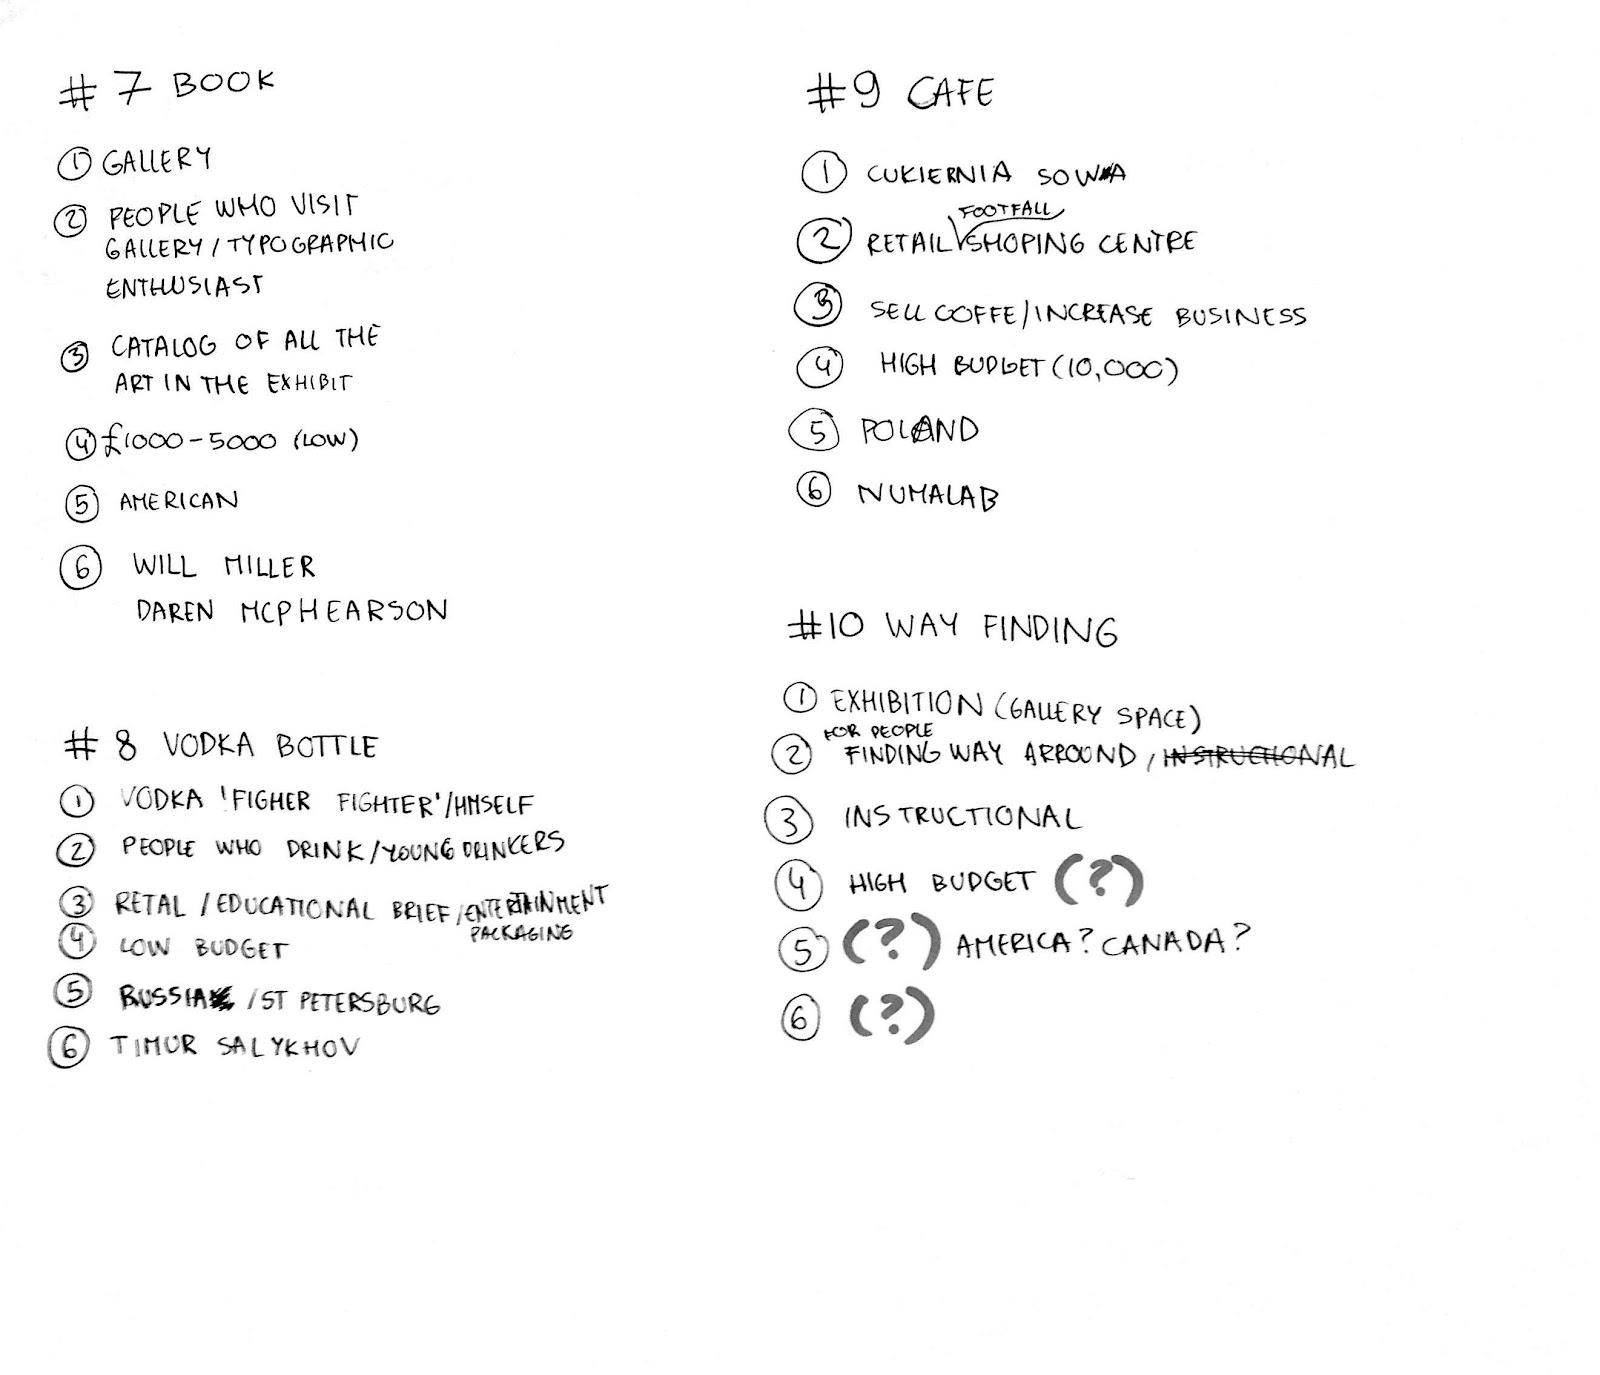 # 7 BOOK
① GALLERY
② PEOPLE WHO VISIT
GALLERY / TYPOGRAPHIC
ENTHUSIAST
③ CATALOG OF ALL THE
ART IN THE EXHIBIT
④ £1000 - 5000 (LOW)
⑤ AMERICAN
⑥ WILL MILLER
DAREN MCPHEARSON
# 8 VODKA BOTTLE
① VODKA 'FIGHER FIGHTER'/HMSELF
② PEOPLE WHO DRINK/YOUNG DRINKERS
③ RETAL / EDUCATIONAL BRIEF / ENTERTAINMENT
PACKAGING
④ LOW BUDGET
⑤ RUSSIA / ST PETERSBURG
⑥ TIMUR SALYKHOV
#9 CAFE
① CUKIERNIA SOWA
FOOTFALL
② RETAIL SHOPING CENTRE
③ SELL COFFE/INCREASE BUSINESS
④ HIGH BUDGET (10,000)
⑤ POLAND
⑥ NUMALAB
#10 WAY FINDING
① EXHIBITION (GALLERY SPACE)
FOR PEOPLE
② FINDING WAY ARROUND, INSTRUCTIONAL
③ INSTRUCTIONAL
④ HIGH BUDGET (?)
⑤ (?) AMERICA? CANADA?
⑥ (?)